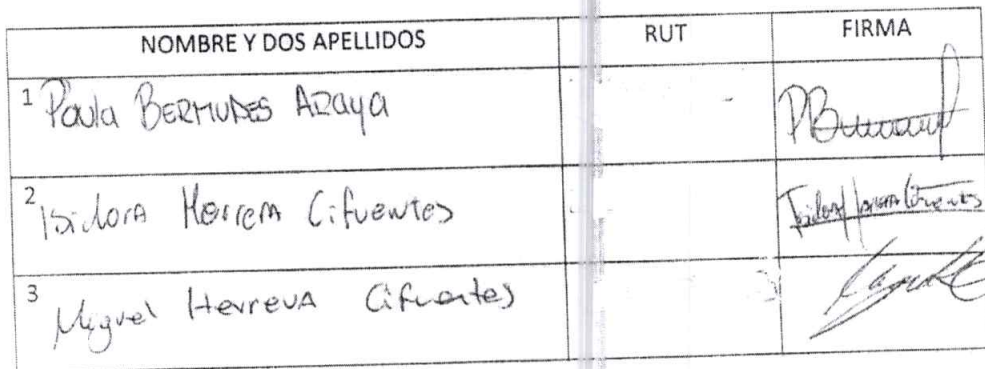 NOMBRE Y DOS APELLIDOS RUT FIRMA
1 Paula BERMUDES ARAYA PB
2 Isidora Herrera Cifuentes Isidora Herrera Cifuentes
3 Miguel Herrera Cifuentes